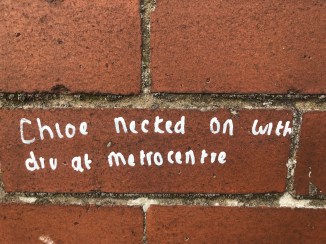 Chloe necked on with
div at metrocentre